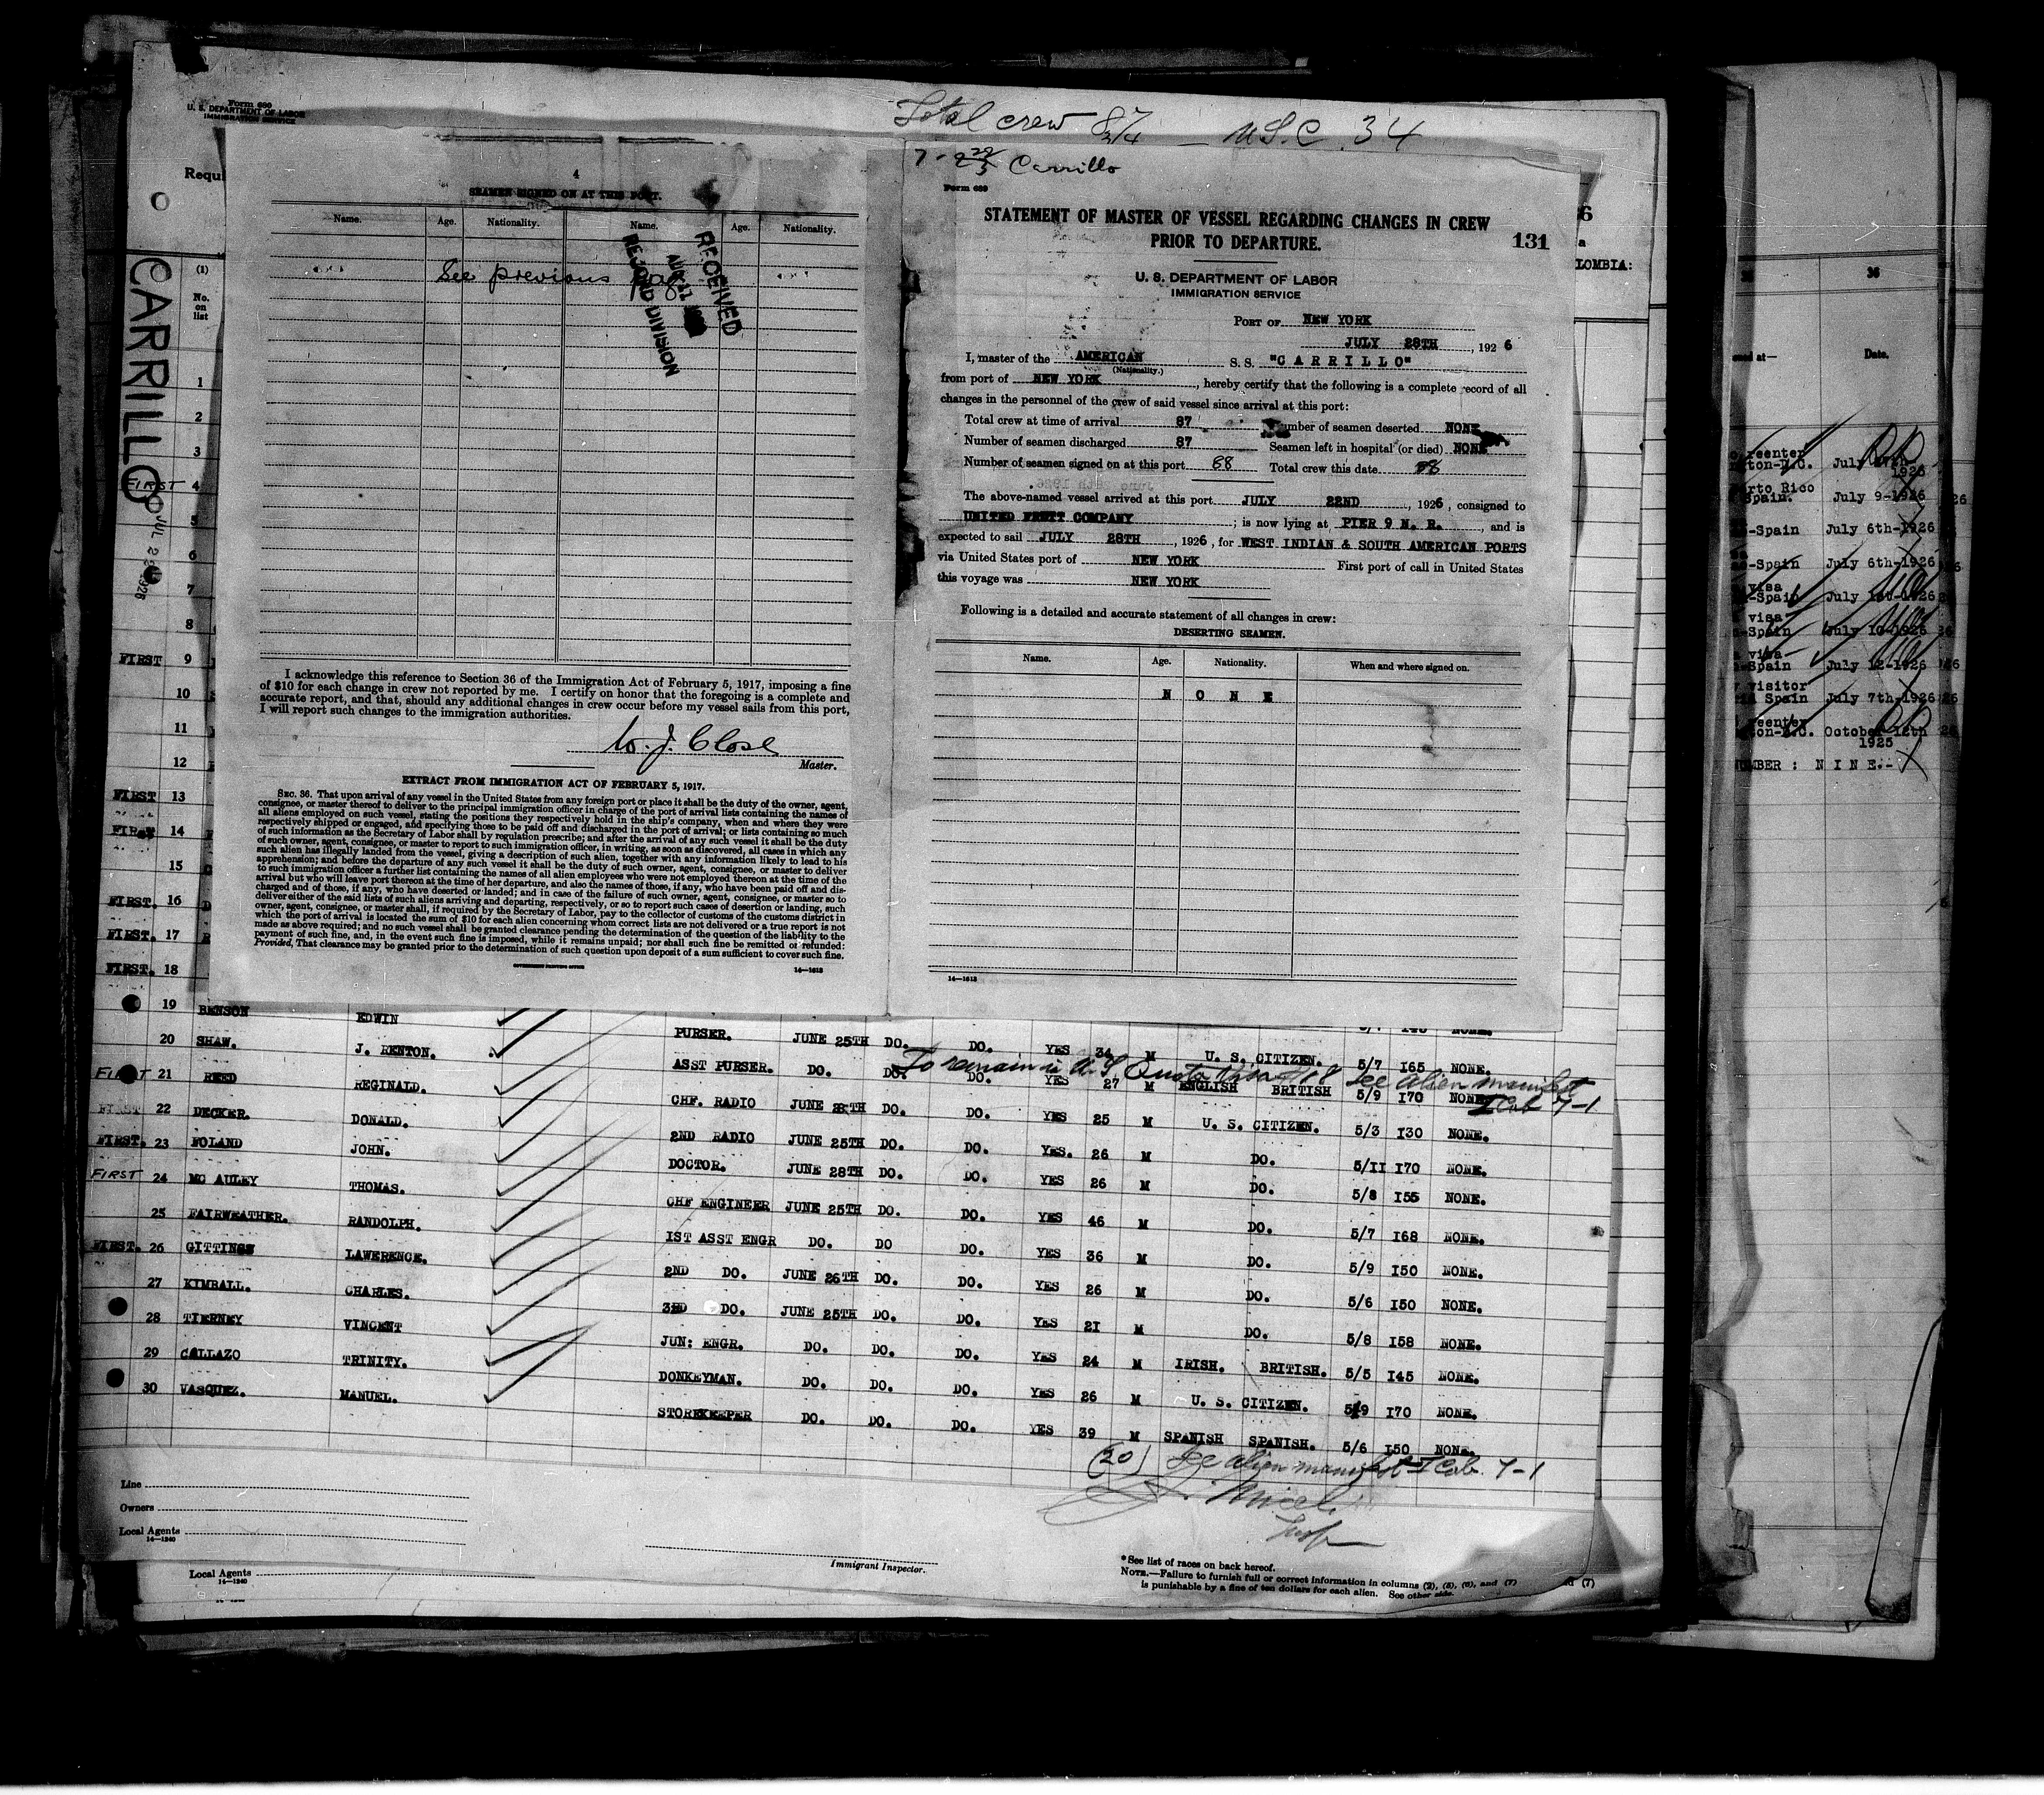 Form 680
U. S. DEPARTMENT OF LABOR
IMMIGRATION SERVICE
Total crew 87 — U.S.C. 34
CARRILLO
JUL 22 1926
(1)
No.
on
list
4
SEAMEN SIGNED ON AT THIS PORT.
Name. Age. Nationality. Name. Age. Nationality.
See previous page
RECEIVED
RECORD DIVISION
I acknowledge this reference to Section 36 of the Immigration Act of February 5, 1917, imposing a fine
of $10 for each change in crew not reported by me. I certify on honor that the foregoing is a complete and
accurate report, and that, should any additional changes in crew occur before my vessel sails from this port,
I will report such changes to the immigration authorities.
W. J. Close
Master.
EXTRACT FROM IMMIGRATION ACT OF FEBRUARY 5, 1917.
SEC. 36. That upon arrival of any vessel in the United States from any foreign port or place it shall be the duty of the owner, agent,
consignee, or master thereof to deliver to the principal immigration officer in charge of the port of arrival lists containing the names of
all aliens employed on such vessel, stating the positions they respectively hold in the ship's company, when and where they were
respectively shipped or engaged, and specifying those to be paid off and discharged in the port of arrival; or lists containing so much
of such information as the Secretary of Labor shall by regulation prescribe; and after the arrival of any such vessel it shall be the duty
of such owner, agent, consignee, or master to report to such immigration officer, in writing, as soon as discovered, all cases in which any
such alien has illegally landed from the vessel, giving a description of such alien, together with any information likely to lead to his
apprehension; and before the departure of any such vessel it shall be the duty of such owner, agent, consignee, or master to deliver
to such immigration officer a further list containing the names of all alien employees who were not employed thereon at the time of the
arrival but who will leave port thereon at the time of her departure, and also the names of those, if any, who have been paid off and dis-
charged and of those, if any, who have deserted or landed; and in case of the failure of such owner, agent, consignee, or master so to
deliver either of the said lists of such aliens arriving and departing, respectively, or so to report such cases of desertion or landing, such
owner, agent, consignee, or master shall, if required by the Secretary of Labor, pay to the collector of customs of the customs district in
which the port of arrival is located the sum of $10 for each alien concerning whom correct lists are not delivered or a true report is not
made as above required; and no such vessel shall be granted clearance pending the determination of the question of the liability to the
payment of such fine, and, in the event such fine is imposed, while it remains unpaid; nor shall such fine be remitted or refunded:
Provided, That clearance may be granted prior to the determination of such question upon deposit of a sum sufficient to cover such fine.
GOVERNMENT PRINTING OFFICE 14—1613
Carrillo
Form 689
STATEMENT OF MASTER OF VESSEL REGARDING CHANGES IN CREW
PRIOR TO DEPARTURE.
131
U. S. DEPARTMENT OF LABOR
IMMIGRATION SERVICE
PORT OF NEW YORK
JULY 28TH, 1926
I, master of the AMERICAN S. S. "CARRILLO"
(Nationality.)
from port of NEW YORK, hereby certify that the following is a complete record of all
changes in the personnel of the crew of said vessel since arrival at this port:
Total crew at time of arrival 87 Number of seamen deserted NONE
Number of seamen discharged 87 Seamen left in hospital (or died) NONE
Number of seamen signed on at this port 88 Total crew this date 88
The above-named vessel arrived at this port JULY 22ND, 1926, consigned to
UNITED FRUIT COMPANY; is now lying at PIER 9 N. R., and is
expected to sail JULY 28TH, 1926, for WEST INDIAN & SOUTH AMERICAN PORTS
via United States port of NEW YORK First port of call in United States
this voyage was NEW YORK
Following is a detailed and accurate statement of all changes in crew:
DESERTING SEAMEN.
Name. Age. Nationality. When and where signed on.
N O N E
14—1613
1
2
3
FIRST 4
5
6
7
8
FIRST 9
10
11
12
FIRST 13
FIRST 14
15
FIRST. 16
FIRST. 17
FIRST. 18
19 BENSON EDWIN PURSER. JUNE 25TH DO. DO. YES 34 M U. S. CITIZEN. 5/7 165 NONE.
20 SHAW. J. RENTON. ASST PURSER. DO. DO. DO. YES 27 M ENGLISH BRITISH 5/9 170 NONE.
To remain in U.S. Quota Visa See alien manifest
FIRST 21 REED REGINALD. CHF. RADIO JUNE 28TH DO. DO. YES 25 M U. S. CITIZEN. 5/3 130 NONE.
FIRST 22 DECKER. DONALD. 2ND RADIO JUNE 25TH DO. DO. YES. 26 M DO. 5/11 170 NONE.
FIRST. 23 FOLAND JOHN. DOCTOR. JUNE 28TH DO. DO. YES 26 M DO. 5/8 155 NONE.
FIRST 24 MC AULEY THOMAS. CHF ENGINEER JUNE 25TH DO. DO. YES 46 M DO. 5/7 168 NONE.
25 FAIRWEATHER. RANDOLPH. 1ST ASST ENGR DO. DO DO. YES 36 M DO. 5/9 150 NONE.
FIRST. 26 GITTINGS LAWERENCE. 2ND DO. JUNE 26TH DO. DO. YES 26 M DO. 5/6 150 NONE.
27 KIMBALL. CHARLES. 3RD DO. JUNE 25TH DO. DO. YES 21 M DO. 5/8 158 NONE.
28 TIERNEY VINCENT JUN: ENGR. DO. DO. DO. YES 24 M IRISH. BRITISH. 5/5 145 NONE.
29 COLLAZO TRINITY. DONKEYMAN. DO. DO. DO. YES 26 M U. S. CITIZEN. 5/9 170 NONE.
30 VASQUEZ. MANUEL. STOREKEEPER DO. DO. DO. YES 39 M SPANISH SPANISH. 5/6 150 NONE.
(20) See alien manifest 1 Cab. 7-1
Line
Owners
Local Agents
14—1240
Immigrant Inspector.
*See list of races on back hereof.
NOTE.—Failure to furnish full or correct information in columns (2), (5), (6), and (7)
is punishable by a fine of ten dollars for each alien. See other side.
Local Agents
14—1240
LOMBIA:
36
Date.
reenter
July
1926
Porto Rico
Spain. July 9-1926
-Spain July 6th-1926
-Spain July 6th-1926
visa
-Spain July 1st-1926
visa
-Spain July 10-1926
visa
-Spain July 12-1926
visitor
Spain July 7th-1926
reenter
October 12th
1925
NUMBER : N I N E.-